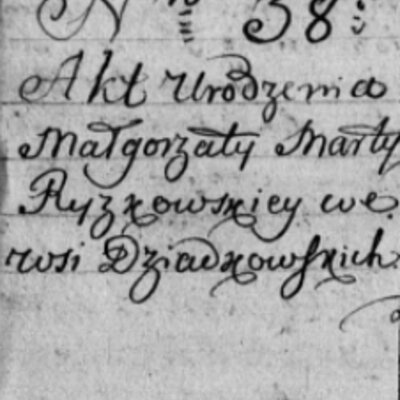 No 38
Akt Urodzenia
Małgorzaty Marty
Ryzkowskiey we
wsi Dziadkowskich